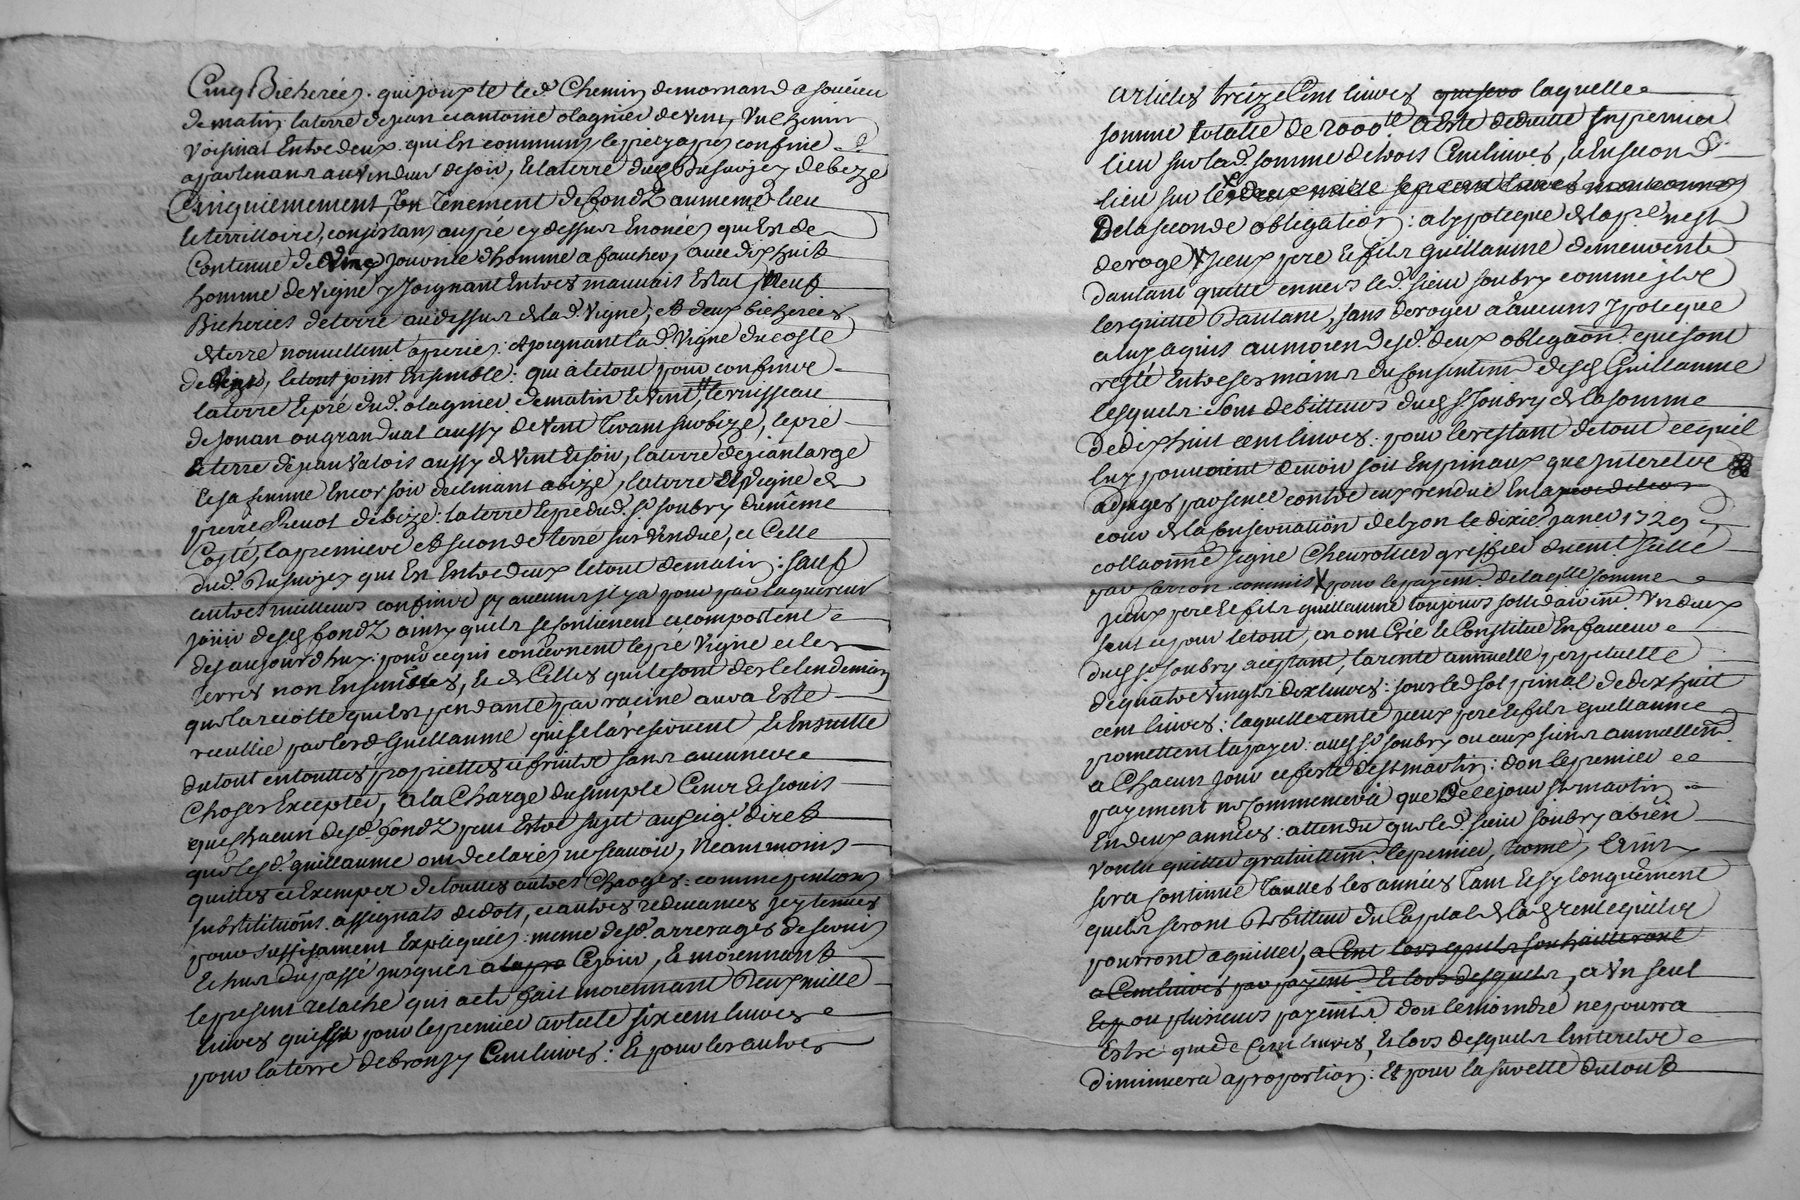 Cinq Bicherées. qui jouxte led. Chemin de mornand a soucieu
de matin la terre de jean et antoine olagnier de vent, Un chemin
voisinal Entre deux. qui Est commun, le pré cy apres confiné
apartenant au vendeur de soir, & la terre dud. Dusurjey de bize
Cinquiemement, Un Tenement de fondz au meme lieu
& territtoire, consistans au pré cy dessus Enoncé, qui Est de
Contenue de Cinq journée d'homme a faucher, avec dix huit
homme de vigne y Joignant Entres mauvais Estat, Neuf
Bicherées de terre au dessus de lad. vigne, et deux bicherées
de terre nouvellemt apenées: & joignant lad. vigne du costé
de vent, le tout joint Ensemble: qui a le tout pour confins
la terre & pré dud. olagnier de matin & vent, le ruisseau
de jonan ou grand val aussy de vent Tirant sur bize, le pré
& terre de jean valois aussy de vent & soir, la terre de jean large
& sa femme Encor soir declinant a bize, la terre & vigne de
pierre de bize: la terre & pré dud. sr. soubry du même
Costé, la premiere et seconde terre sus vendue, et Celle
dud. Dusurjey qui Est Entre deux le tout de matin: sauf
autres meilleurs confins sy aucuns il y a pour par l'aquereur
jouir desd. fondz ainsy qu'ils se contienent et comportent
des aujourd'huy: pour ce qui concernent le pré vigne et les
terres non Ensemées, & de Celles qui le sont des le lendemain
que la recolte qui Est pendante par racine aura Esté
receullie par lesd. Guillaume qui se la reservent & Ensuitte
du tout en touttes proprietés et fruits sans aucunnes
choses Exceptée, a la Charge du simple Cens & servis
que chacun desd. fondz peut Estre sujet au seigr. direct
que lesd. guillaume ont declarés ne scavoir, neanmoins
quittes et Exempts de touttes autres Charges: comme pentions
substitutions. assignats de dots, et autres redevances icy tenues
pour suffisament Expliquées: meme desd. arrerages de servis
Echus du passé jusques a Cejour, & moiennant
le present relache qui a eté fait moiennant Deux mille
livres qui Est pour le premier article six cent livres
pour la terre de bronsy Cent livres: & pour les autres
articles treize Cent livres laquelle
somme totalle de 2000tt a Esté deduitte En premier
lieu sur lad. somme de trois Cent livres, & En second
lieu sur le deux mille sept cent livres
De la seconde obligation: a l'ypoteque de la pre. n'est
derogé X yceux pere & fils Guillaume demeurent
d'autant quitte envers led. sieur soubry comme il
les quitte D'autant, sans deroger a aucuns Ypoteque
a luy aquis au moien desd. deux obligaon. qui sont
resté Entre ses mains du consentemt desd. Guillaume
lesquels. sont debitteurs dud. sr. soubry de la somme
de dix huit cent livres: pour le restant de tout ce qu'il
luy pouvoient devoir soit En prinaux que Interets
adjugés par sent. contre eux rendue En la
cour de la Conservation de lyon le dixie. janer 1729
collaonné signé Chevrottier greffier duemt scellé
par farion commis X pour le payemt. de laqlle somme
yceux pere & fils guillaume toujours sollidairemt. Un d'eux
seul et pour le tout, en ont Créé & Constitué En faveur
dud. sr. soubry aceptant, la rente annuelle, perpetuelle
de quatre vingts dix livres: sous led. sol prinal de dix huit
cent livres: laquelle rente yceux pere & fils guillaume
promettent la payer: aud. sr. soubry ou aux siens annuellemt.
a Chacun jour et feste de st. martin: dont le premier
payement ne commencera que De le jour st. martin
En deux années: attendu que led. sieur soubry a bien
voulu quitter gratuittemt. le premier, terme, & ainsy
sera continué Touttes les années Tant & sy longuement
qu'ils seront Debitteur du Capital de lad. rente qu'ils
pourront aquitter, a Cent lors qu'ils souhaitteront
a Cent livres par payemt. & lors desquels, a Un seul
& ou plusieurs payemts dont le moindre ne pourra
Estre que de Cent livres, & lors desquels l'interets
diminuera a proportion: Et pour la sureté du tout